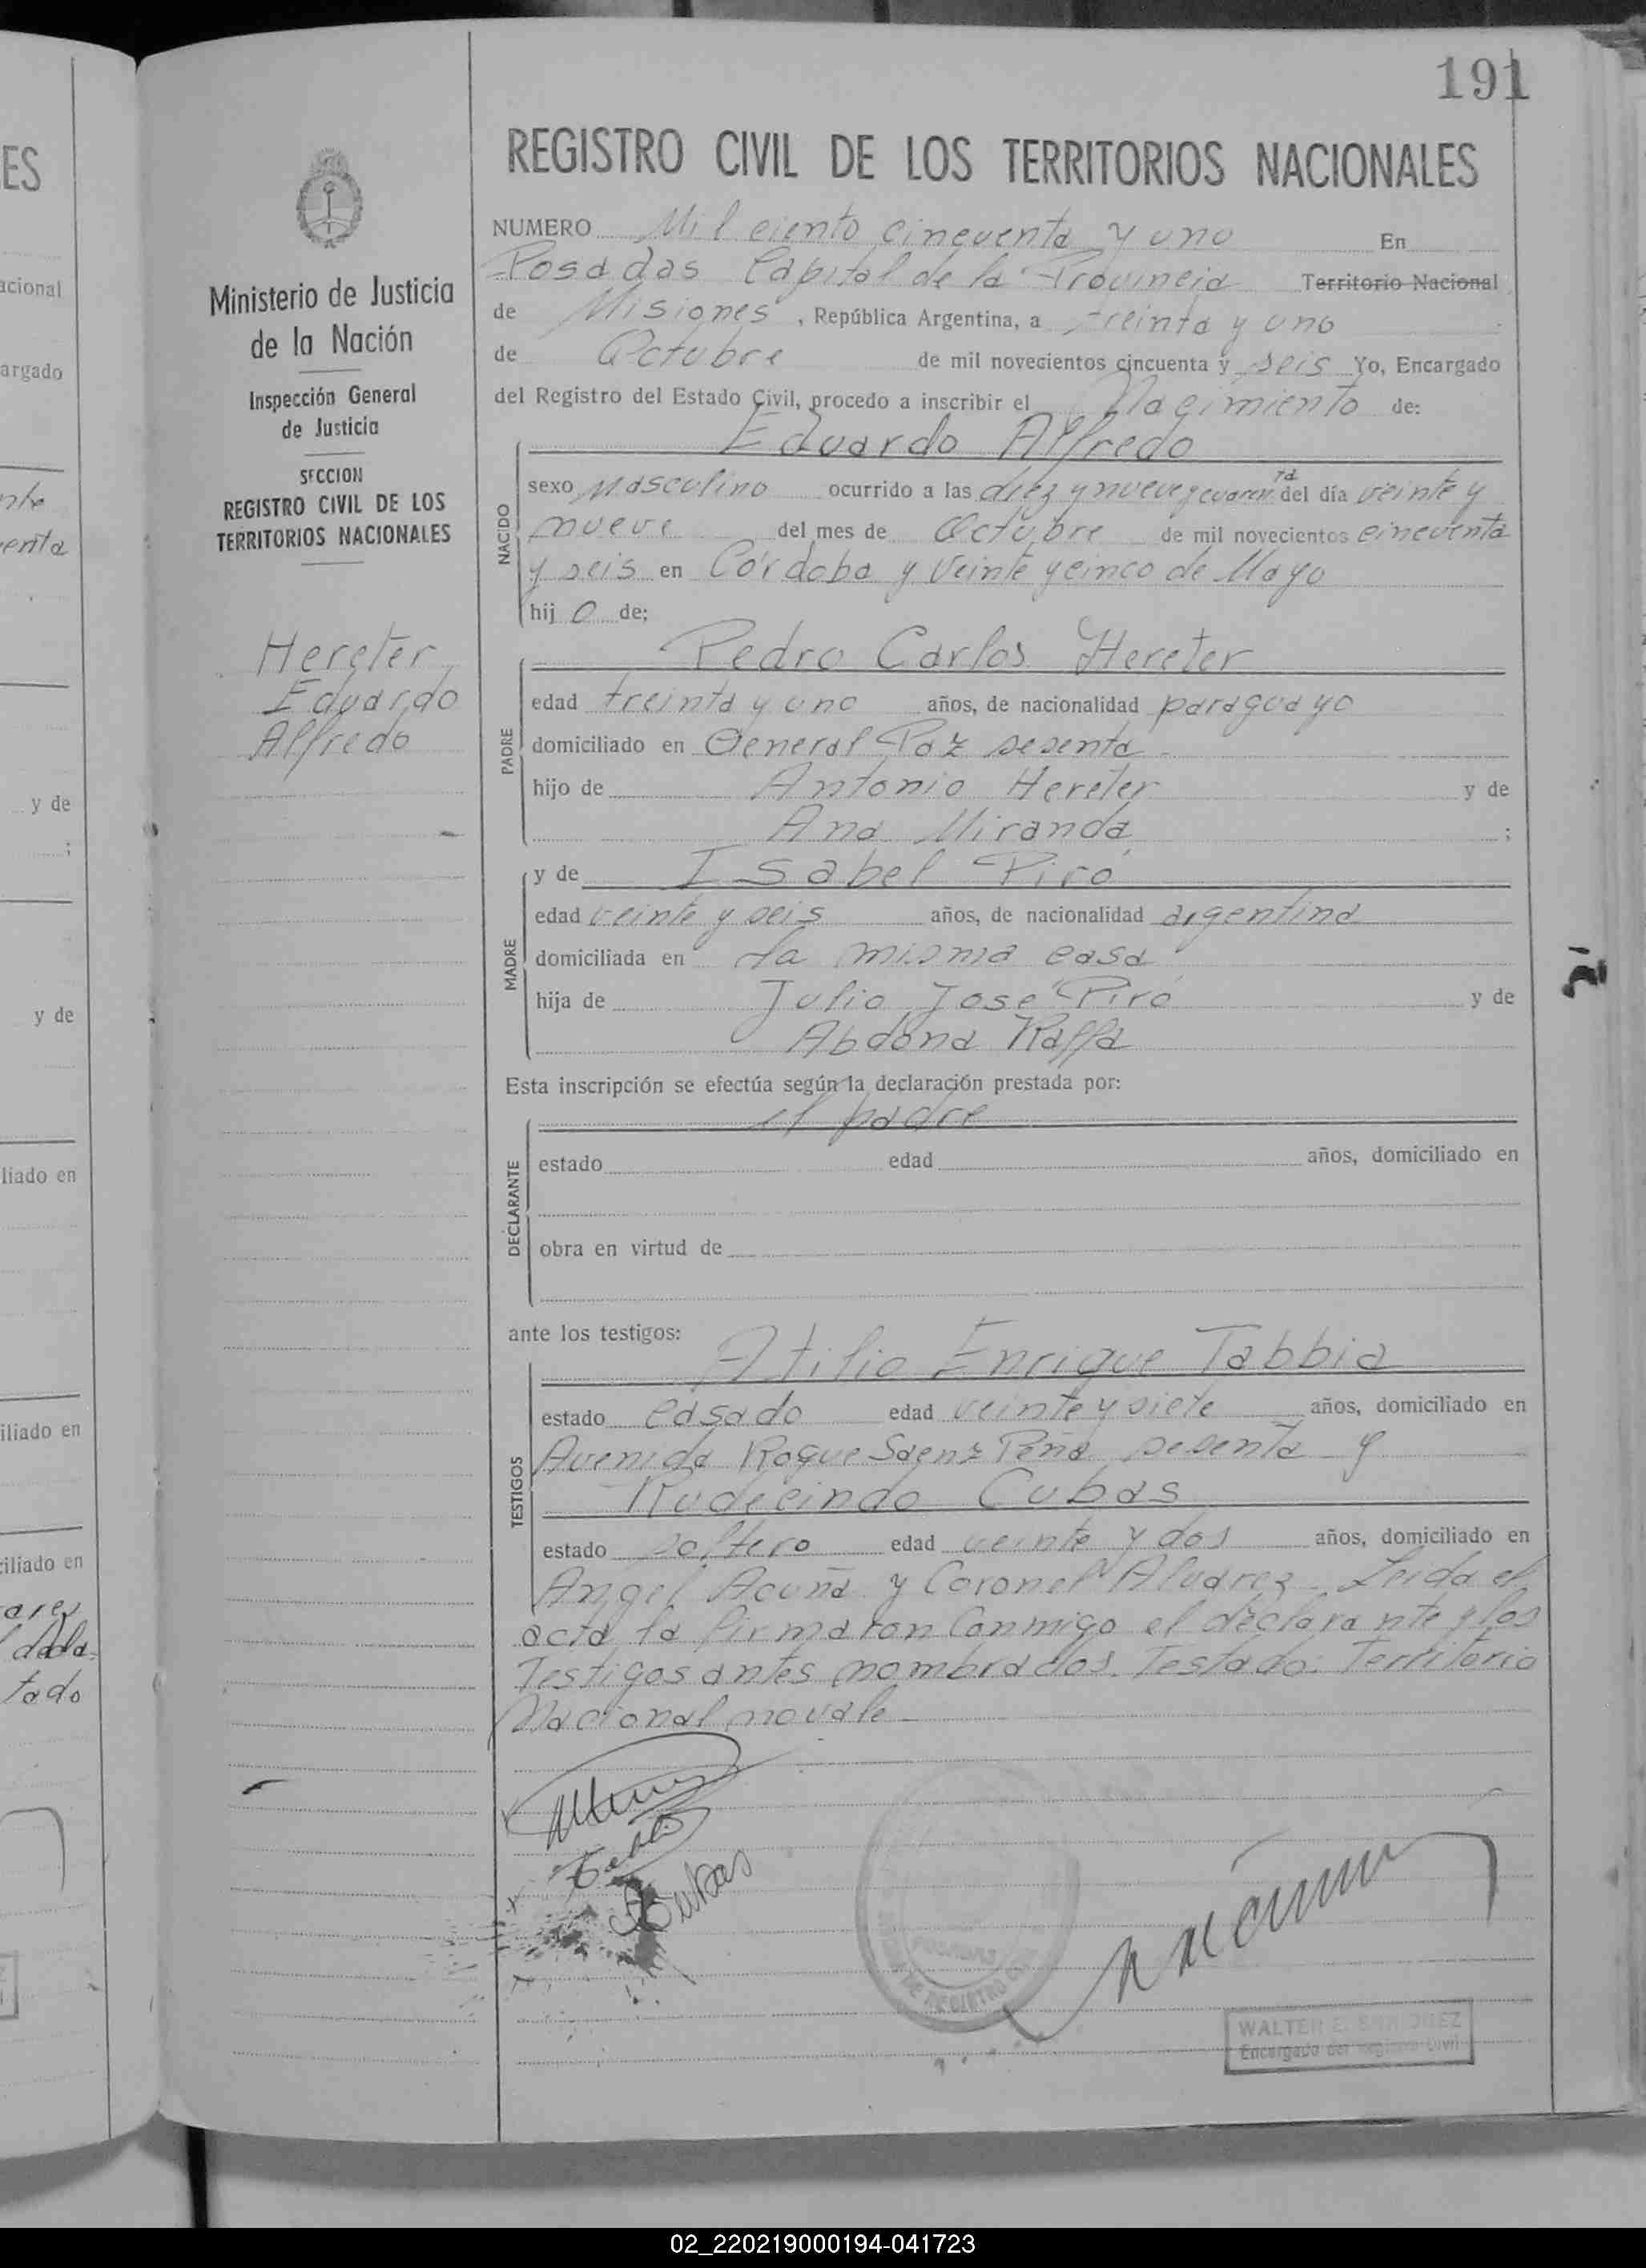 191
REGISTRO CIVIL DE LOS TERRITORIOS NACIONALES
Ministerio de Justicia
de la Nación
Inspección General
de Justicia
SECCION
REGISTRO CIVIL DE LOS
TERRITORIOS NACIONALES
Hereter
Eduardo
Alfredo
NUMERO Mil ciento cincuenta y uno En
Posadas Capital de la Provincia Territorio Nacional
de Misiones, República Argentina, a treinta y uno
de Octubre de mil novecientos cincuenta y seis Yo, Encargado
del Registro del Estado Civil, procedo a inscribir el Nacimiento de:
Eduardo Alfredo
NACIDO
sexo Masculino ocurrido a las diez y nueve y cuarenta del día veinte y
nueve del mes de Octubre de mil novecientos cincuenta
y seis en Córdoba y Veinte y cinco de Mayo
hij o de;
Pedro Carlos Hereter
PADRE
edad treinta y uno años, de nacionalidad paraguayo
domiciliado en General Paz sesenta
hijo de Antonio Hereter y de
Ana Miranda ;
y de Isabel Piró
MADRE
edad veinte y seis años, de nacionalidad argentina
domiciliada en la misma casa
hija de Julio José Piró y de
Abdona Raffa
Esta inscripción se efectúa según la declaración prestada por:
el padre
DECLARANTE
estado edad años, domiciliado en
obra en virtud de
ante los testigos:
Atilio Enrique Tabbia
TESTIGOS
estado casado edad veinte y siete años, domiciliado en
Avenida Roque Saenz Peña sesenta y
Rudecindo Cubas
estado soltero edad veinte y dos años, domiciliado en
Angel Acuña y Coronel Alvarez. Leida el
acta la firmaron conmigo el declarante y los
Testigos antes nombrados. Testado: Territorio
Nacional no vale
Cubas
POSADAS
DE REGISTRO
WALTER E.
Encargado del Registro Civil
ES
acional
argado
nte
enta
y de
;
y de
liado en
iliado en
ciliado en
tado
02_220219000194-041723